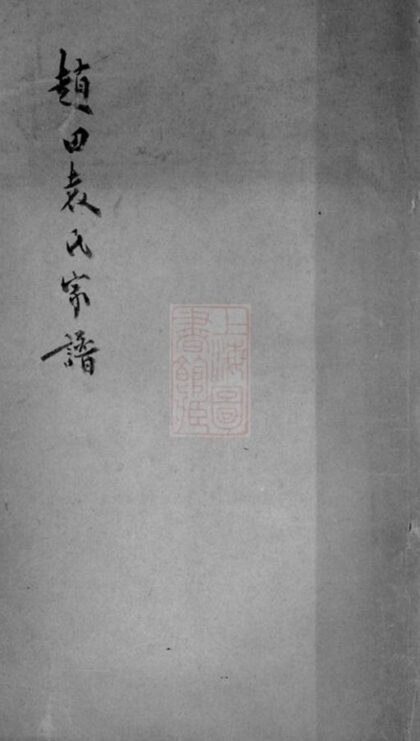 趙田袁氏宗譜
上海圖
書館藏